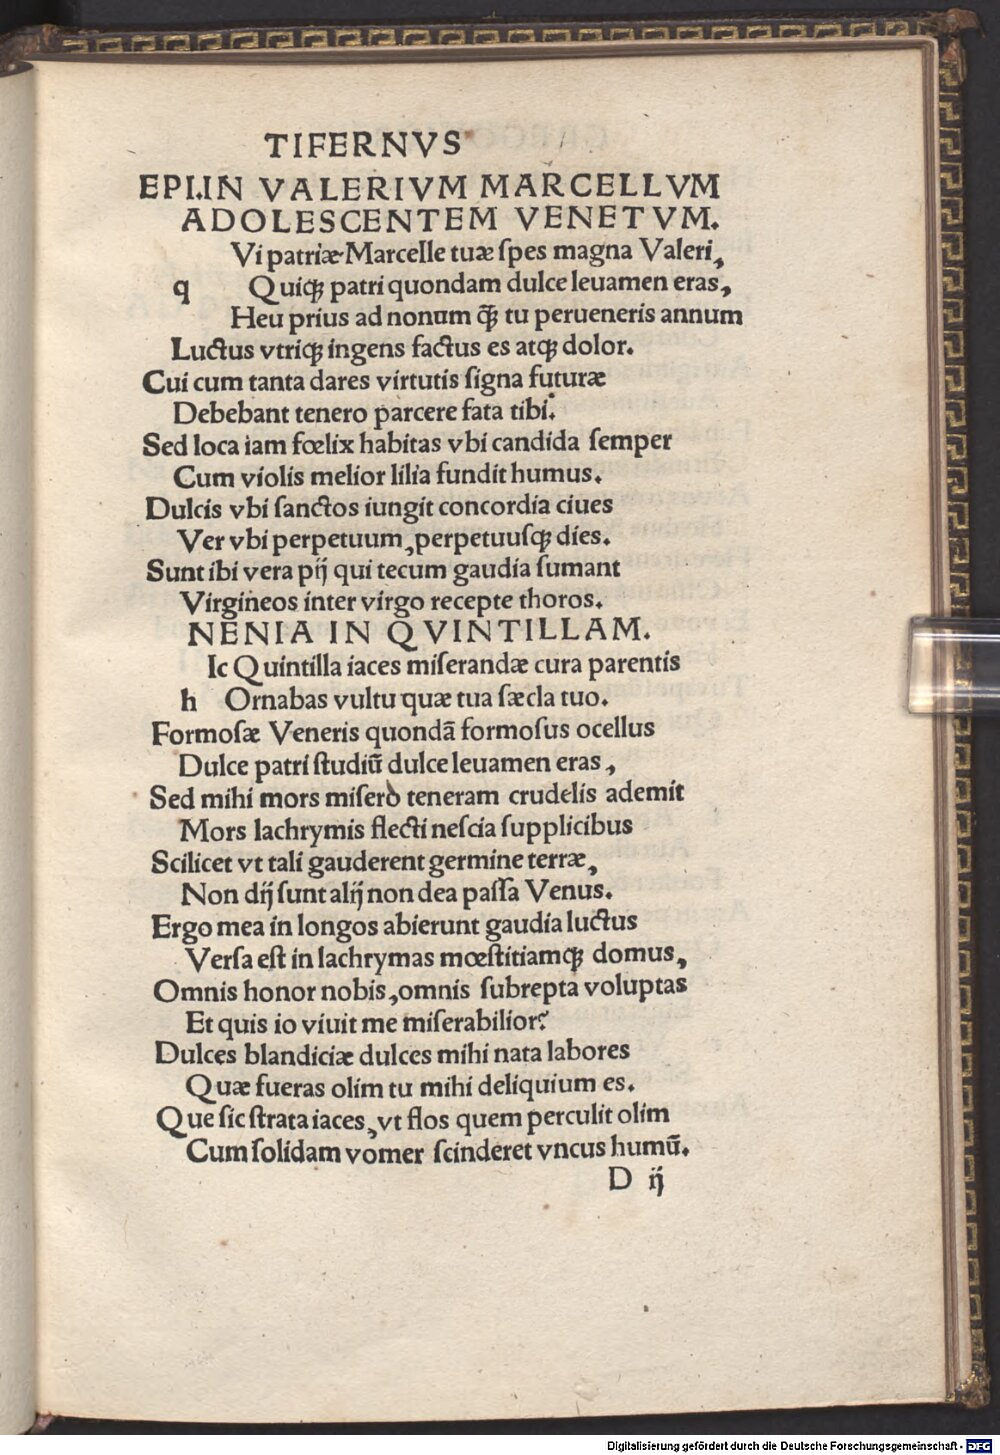 TIFERNVS
EPI.IN VALERIVM MARCELLVM
ADOLESCENTEM VENETVM.
Vi patriæ Marcelle tuæ ſpes magna Valeri,
q Quiqꝫ patri quondam dulce leuamen eras,
Heu prius ad nonum qꝫ̃ tu perueneris annum
Luctus vtriqꝫ ingens factus es atqꝫ dolor.
Cui cum tanta dares virtutis ſigna futuræ
Debebant tenero parcere fata tibi.
Sed loca iam fœlix habitas vbi candida ſemper
Cum violis melior lilia fundit humus.
Dulcis vbi ſanctos iungit concordia ciues
Ver vbi perpetuum, perpetuuſqꝫ dies.
Sunt ibi vera pij qui tecum gaudia ſumant
Virgineos inter virgo recepte thoros.
NENIA IN QVINTILLAM.
Ic Quintilla iaces miſerandæ cura parentis
h Ornabas vultu quæ tua ſæcla tuo.
Formoſæ Veneris quondã formoſus ocellus
Dulce patri ſtudiũ dulce leuamen eras,
Sed mihi mors miſero teneram crudelis ademit
Mors lachrymis flecti neſcia ſupplicibus
Scilicet vt tali gauderent germine terræ,
Non dij ſunt alij non dea paſſa Venus.
Ergo mea in longos abierunt gaudia luctus
Verſa eſt in lachrymas mœſtitiamqꝫ domus,
Omnis honor nobis, omnis ſubrepta voluptas
Et quis io viuit me miſerabilior?
Dulces blandiciæ dulces mihi nata labores
Quæ fueras olim tu mihi deliquium es.
Que ſic ſtrata iaces, vt flos quem perculit olim
Cum ſolidam vomer ſcinderet vncus humũ.
D ij
Digitalisierung gefördert durch die Deutsche Forschungsgemeinschaft - DFG